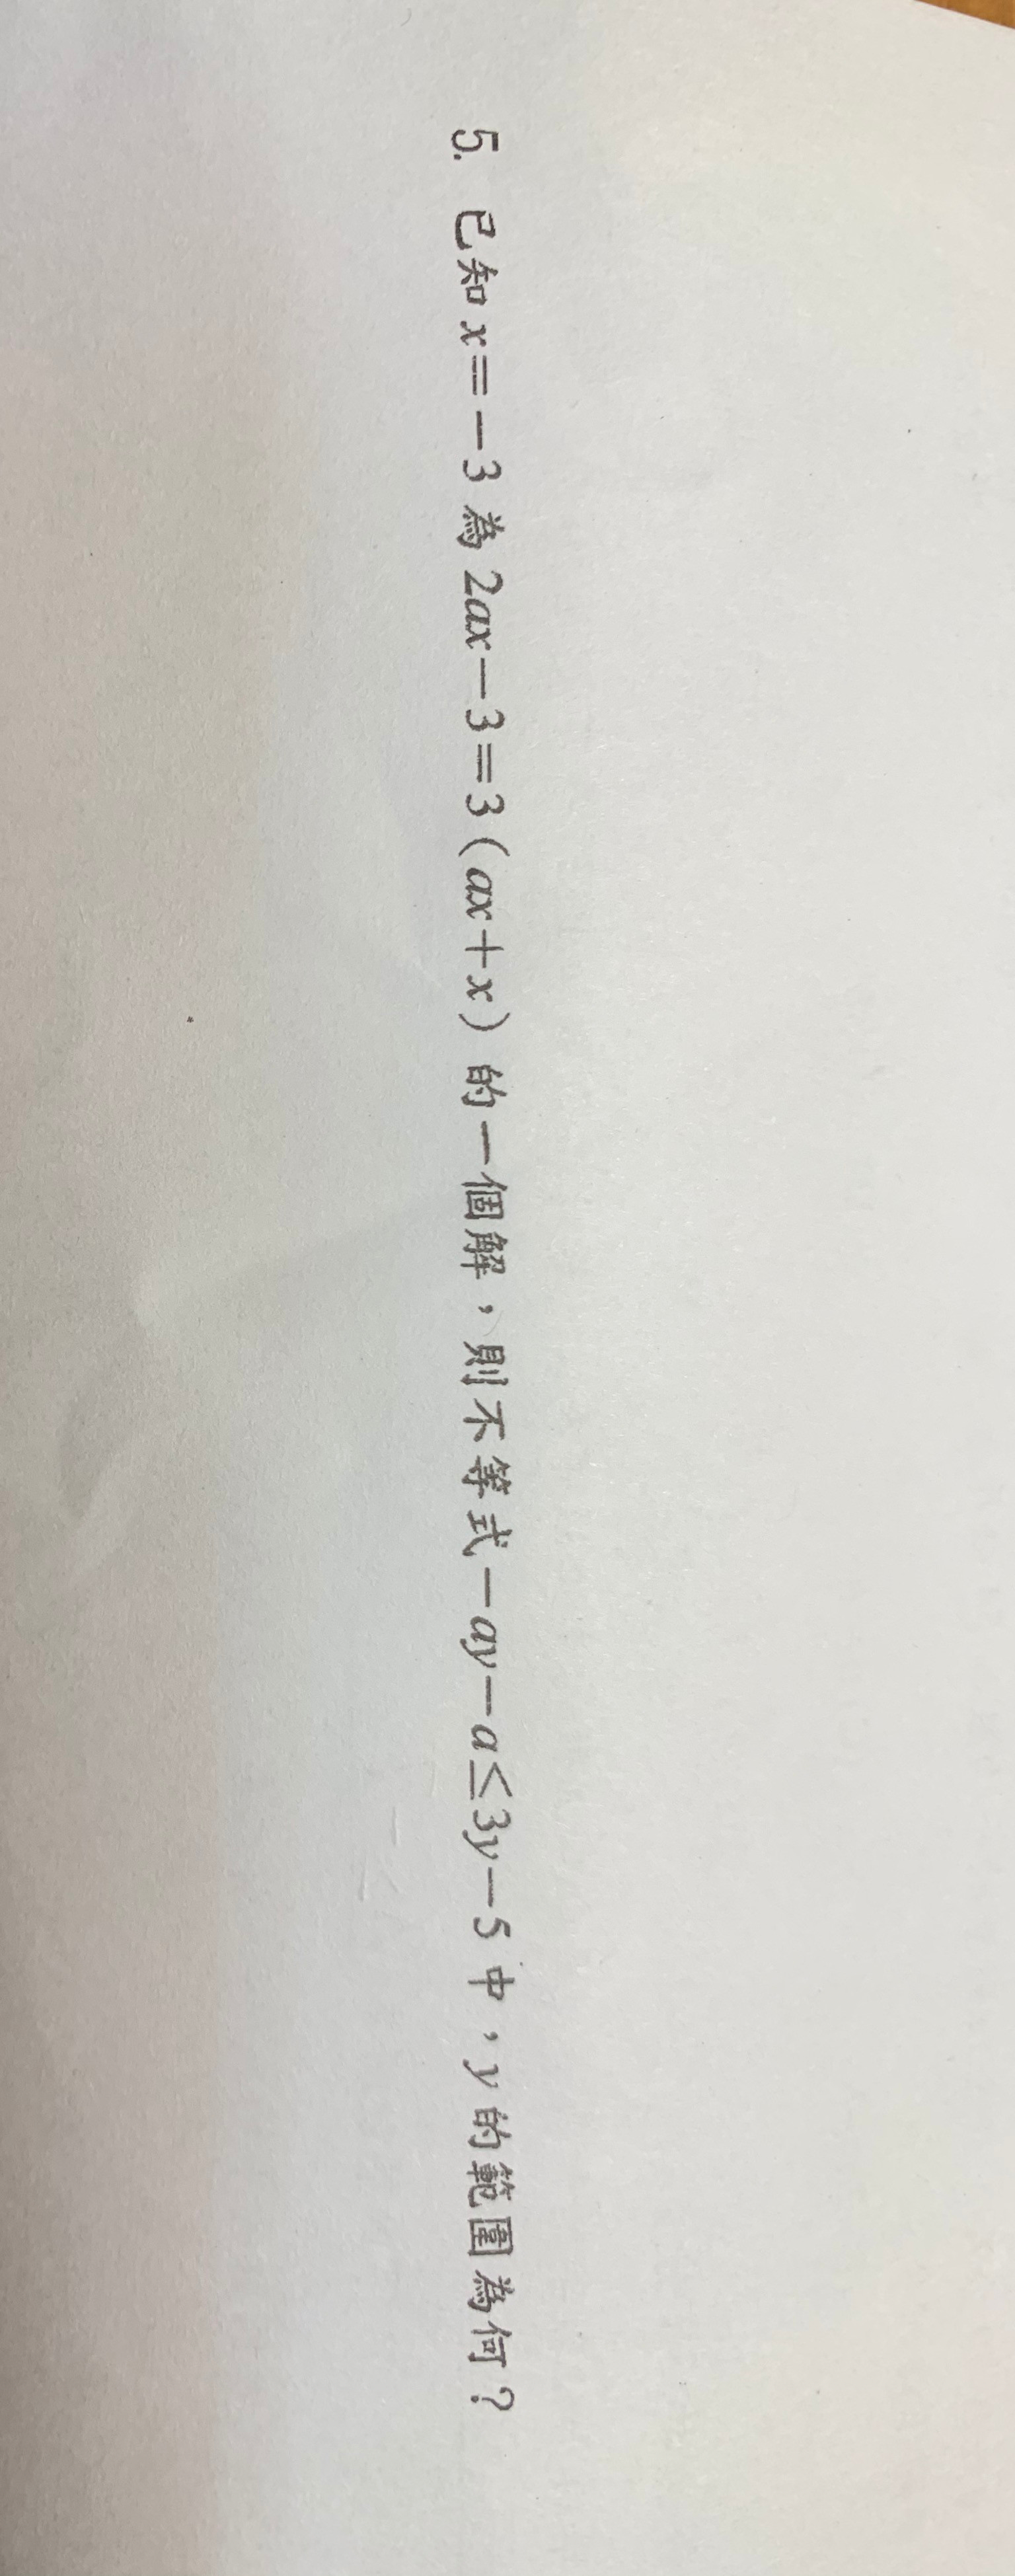 5. 已知x=−3為2ax−3=3(ax+x)的一個解，則不等式−ay−a≤3y−5中，y的範圍為何？